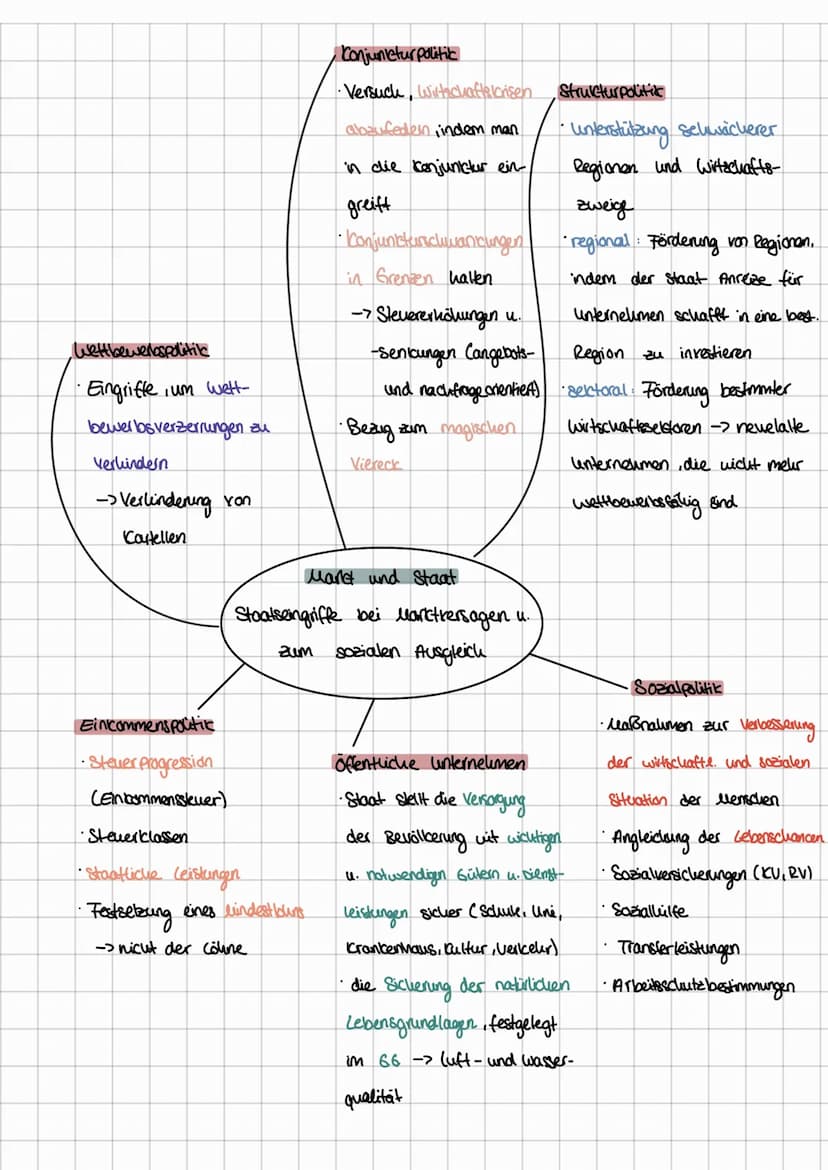 Konjunkturpolitik
· Versuch, Wirtschaftskrisen
abzufedern, indem man
in die Konjunktur ein-
greift
· Konjunkturschwankungen
in Grenzen halten
-> Steuererhöhungen u.
-senkungen (angebots-
und nachfrageorientiert)
· Bezug zum magischen
Viereck
Strukturpolitik
· Unterstützung schwächerer
Regionen und Wirtschafts-
zweige
· regional: Förderung von Regionen,
indem der Staat Anreize für
Unternehmen schafft in eine best.
Region zu investieren
· sektoral: Förderung bestimmter
Wirtschaftssektoren -> neue/alte
Unternehmen, die nicht mehr
wettbewerbsfähig sind
Wettbewerbspolitik
· Eingriffe, um Wett-
bewerbsverzerrungen zu
verhindern
-> Verhinderung von
Kartellen
Markt und Staat
Staatseingriffe bei Marktversagen u.
zum sozialen Ausgleich
Einkommenspolitik
· Steuerprogression
(Einkommensteuer)
· Steuerklassen
· Staatliche Leistungen
· Festsetzung eines Mindestlohns
-> nicht der Löhne
Öffentliche Unternehmen
· Staat stellt die Versorgung
der Bevölkerung mit wichtigen
u. notwendigen Gütern u. Dienst-
leistungen sicher (Schule, Uni,
Krankenhaus, Kultur, Verkehr)
· die Sicherung der natürlichen
Lebensgrundlagen, festgelegt
im GG -> Luft- und Wasser-
qualität
Sozialpolitik
· Maßnahmen zur Verbesserung
der wirtschaftl. und sozialen
Situation der Menschen
· Angleichung der Lebenschancen
· Sozialversicherungen (KV, RV)
· Sozialhilfe
· Transferleistungen
· Arbeitsschutzbestimmungen